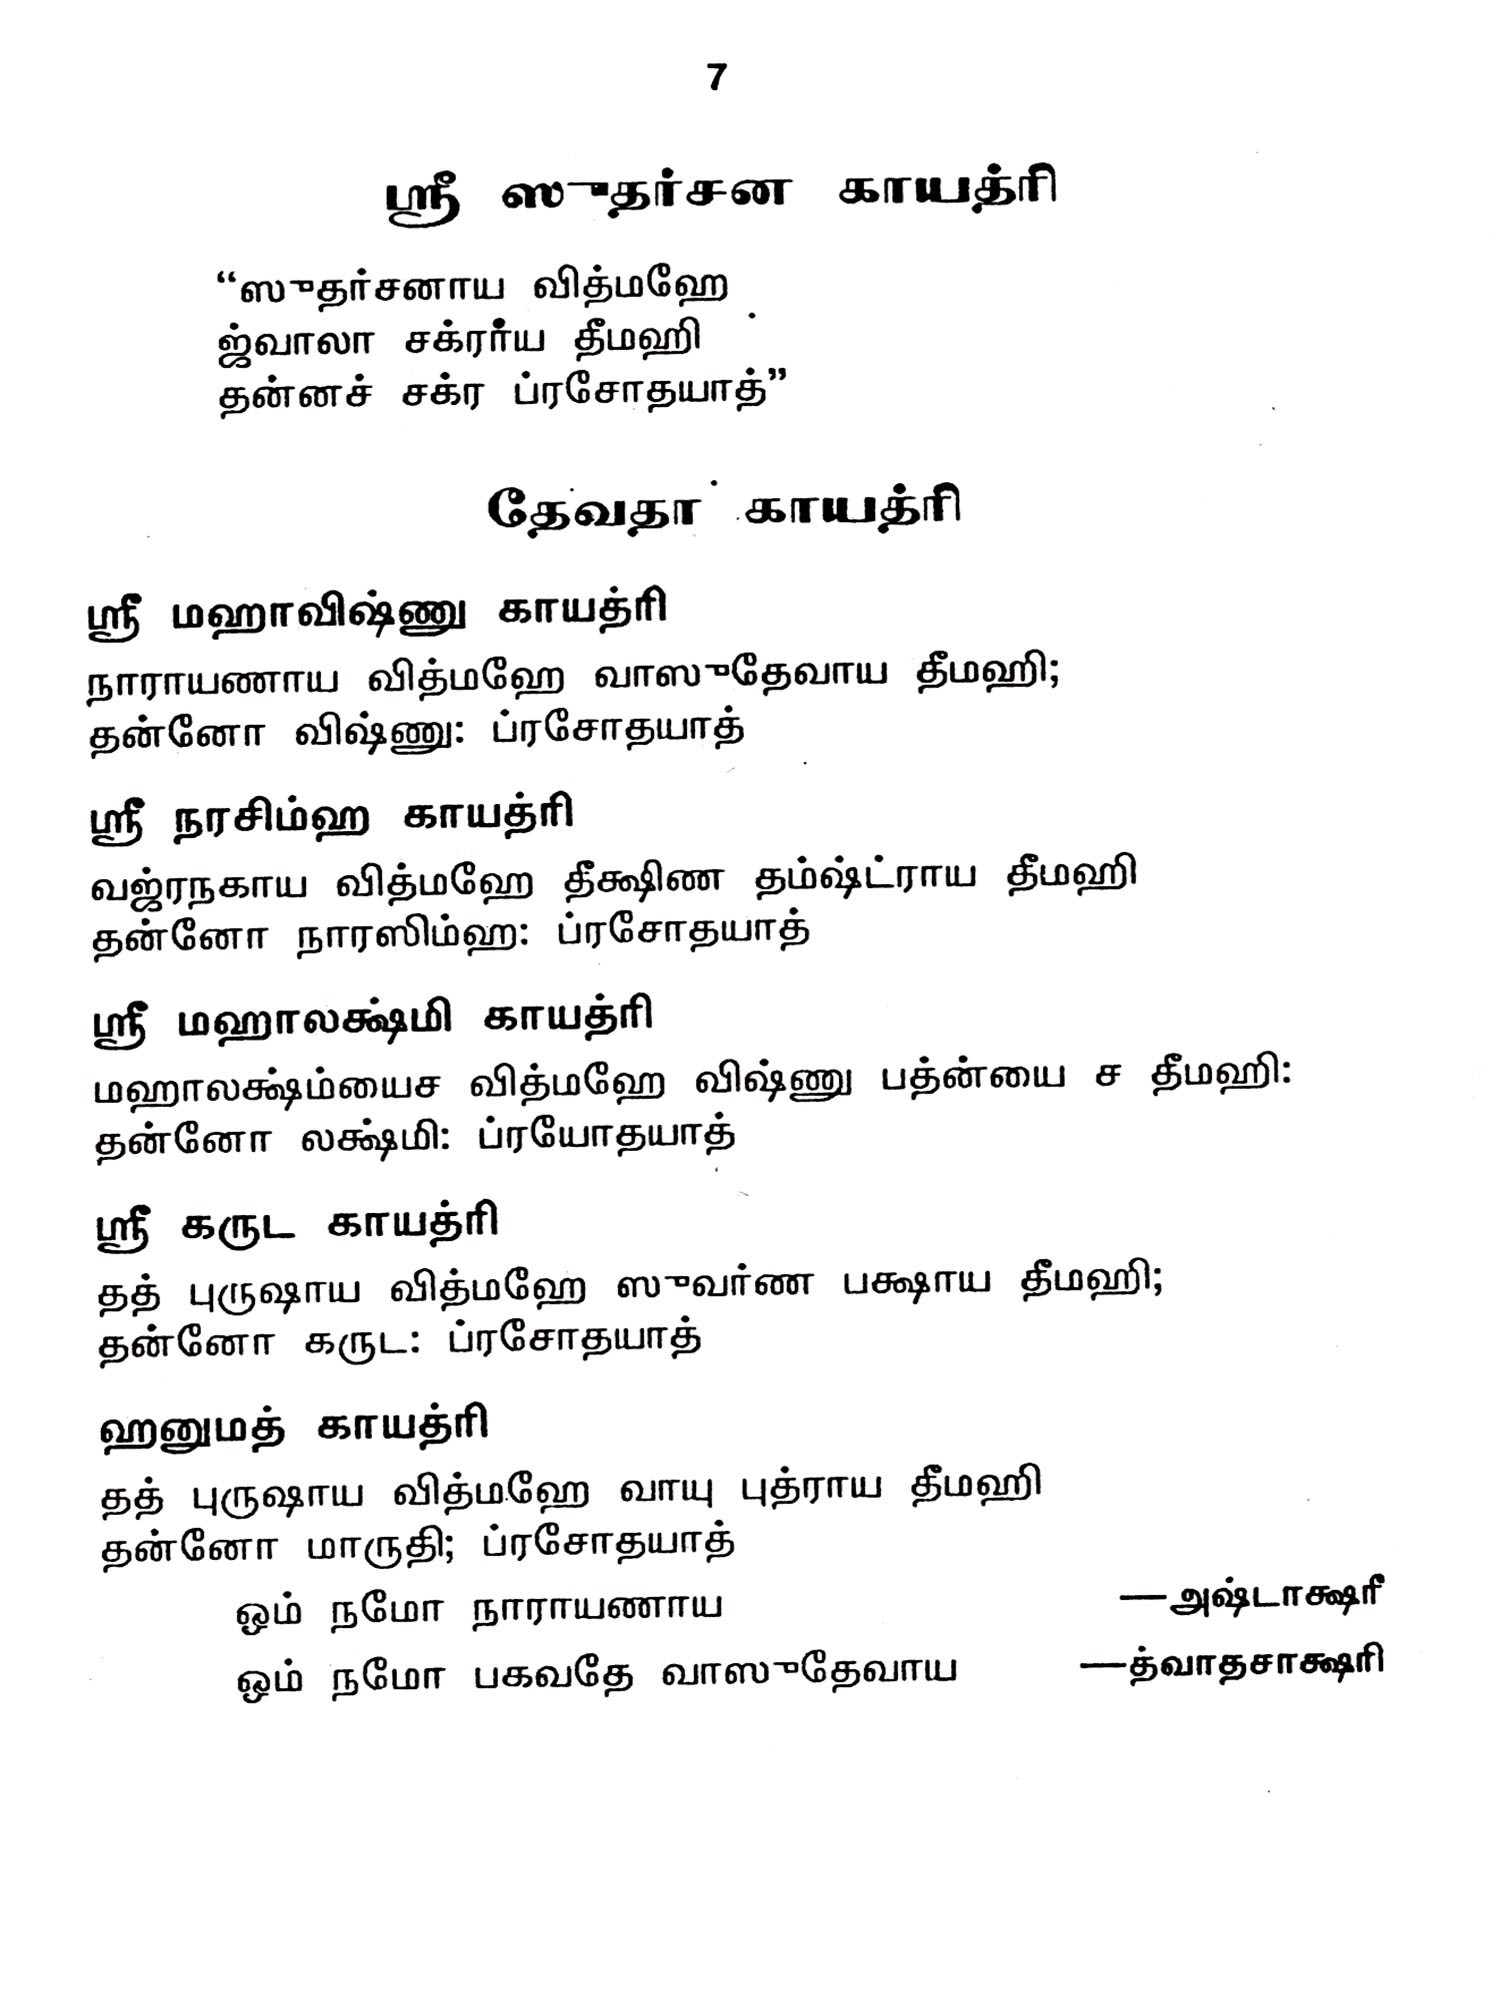 7
ஸ்ரீ ஸுதர்சன காயத்ரி
“ஸுதர்சனாய வித்மஹே
ஜ்வாலா சக்ரர்ய தீமஹி
தன்னச் சக்ர ப்ரசோதயாத்”
தேவதா காயத்ரி
ஸ்ரீ மஹாவிஷ்ணு காயத்ரி
நாராயணாய வித்மஹே வாஸுதேவாய தீமஹி;
தன்னோ விஷ்ணு: ப்ரசோதயாத்
ஸ்ரீ நரசிம்ஹ காயத்ரி
வஜ்ரநகாய வித்மஹே தீக்ஷிண தம்ஷ்ட்ராய தீமஹி
தன்னோ நாரஸிம்ஹ: ப்ரசோதயாத்
ஸ்ரீ மஹாலக்ஷ்மி காயத்ரி
மஹாலக்ஷ்ம்யைச வித்மஹே விஷ்ணு பத்ன்யை ச தீமஹி:
தன்னோ லக்ஷ்மி: ப்ரயோதயாத்
ஸ்ரீ கருட காயத்ரி
தத் புருஷாய வித்மஹே ஸுவர்ண பக்ஷாய தீமஹி;
தன்னோ கருட: ப்ரசோதயாத்
ஹனுமத் காயத்ரி
தத் புருஷாய வித்மஹே வாயு புத்ராய தீமஹி
தன்னோ மாருதி; ப்ரசோதயாத்
ஓம் நமோ நாராயணாய —அஷ்டாக்ஷரீ
ஓம் நமோ பகவதே வாஸுதேவாய —த்வாதசாக்ஷரி